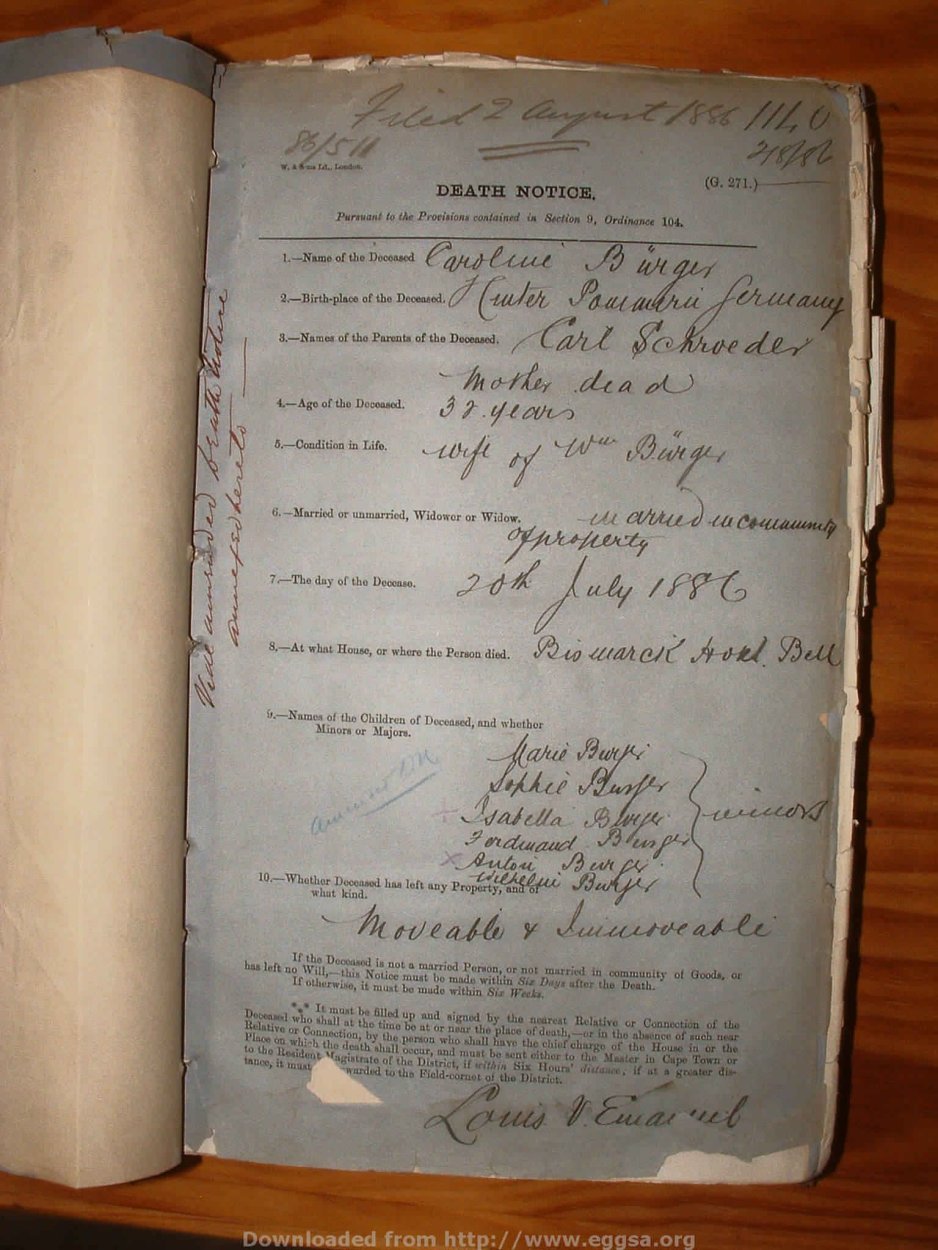 Filed 2 August 1886 1140
86/511
2/8/86
W. & Sons Ld., London.
(G. 271.)
DEATH NOTICE,
Pursuant to the Provisions contained in Section 9, Ordinance 104.
1.—Name of the Deceased Caroline Bürger
2.—Birth-place of the Deceased. Hinter Pommern Germany
3.—Names of the Parents of the Deceased. Carl Schroeder
Mother dead
4.—Age of the Deceased. years
5.—Condition in Life. wife of Wm Bürger
6.—Married or unmarried, Widower or Widow. married in community
of property
7.—The day of the Decease. 20th July 1886
8.—At what House, or where the Person died. Bismarck Hotel. Bell
9.—Names of the Children of Deceased, and whether
Minors or Majors.
Marie Burger
Sophie Burger
Isabella Burger
Ferdinand Burger
Anton Burger
Wilhelm Burger
minors
10.—Whether Deceased has left any Property, and of
what kind.
Moveable & Immoveable
If the Deceased is not a married Person, or not married in community of Goods, or
has left no Will,—this Notice must be made within Six Days after the Death.
If otherwise, it must be made within Six Weeks.
*** It must be filled up and signed by the nearest Relative or Connection of the
Deceased who shall at the time be at or near the place of death,—or in the absence of such near
Relative or Connection, by the person who shall have the chief charge of the House in or the
Place on which the death shall occur, and must be sent either to the Master in Cape Town or
to the Resident Magistrate of the District, if within Six Hours' distance; if at a greater dis-
tance, it must warded to the Field-cornet of the District.
Louis V. Emanuel
Vide amended Death Notice
annexed hereto
amended DN
Downloaded from http://www.eggsa.org